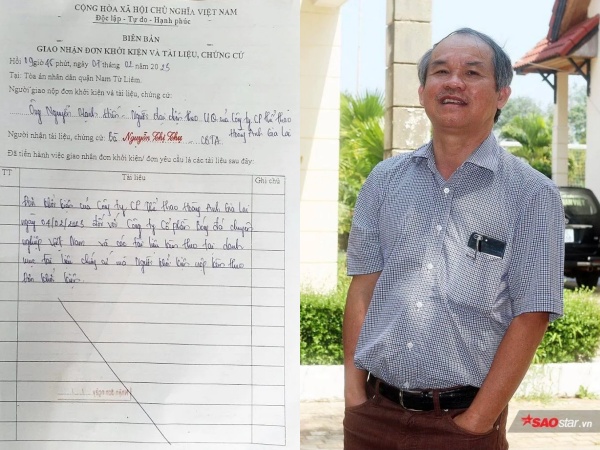 CỘNG HÒA XÃ HỘI CHỦ NGHĨA VIỆT NAM
Độc lập - Tự do - Hạnh phúc
BIÊN BẢN
GIAO NHẬN ĐƠN KHỞI KIỆN VÀ TÀI LIỆU, CHỨNG CỨ
Hồi phút, ngày 07 tháng 02 năm 2023
Tại: Tòa án nhân dân quận Nam Từ Liêm.
Người giao nộp đơn khởi kiện và tài liệu, chứng cứ:
Ông Nguyễn Mạnh Người đại diện theo UQ của Công ty CP Thể thao
Hoàng Anh Gia Lai
Người nhận tài liệu, chứng cứ: Bà Nguyễn Thị Thu CBTA
Đã tiến hành việc giao nhận đơn khởi kiện/ đơn yêu cầu là các tài liệu sau đây:
TT Tài liệu Ghi chú
Đơn khởi kiện của Công ty CP Thể thao Hoàng Anh Gia Lai
ngày 04/02/2023 đối với Công ty Cổ phần Bóng đá chuyên
nghiệp Việt Nam và các tài liệu kèm theo tại danh
mục tài liệu chứng cứ mà Người khởi kiện nộp kèm theo
Đơn khởi kiện.
SAOstar.vn